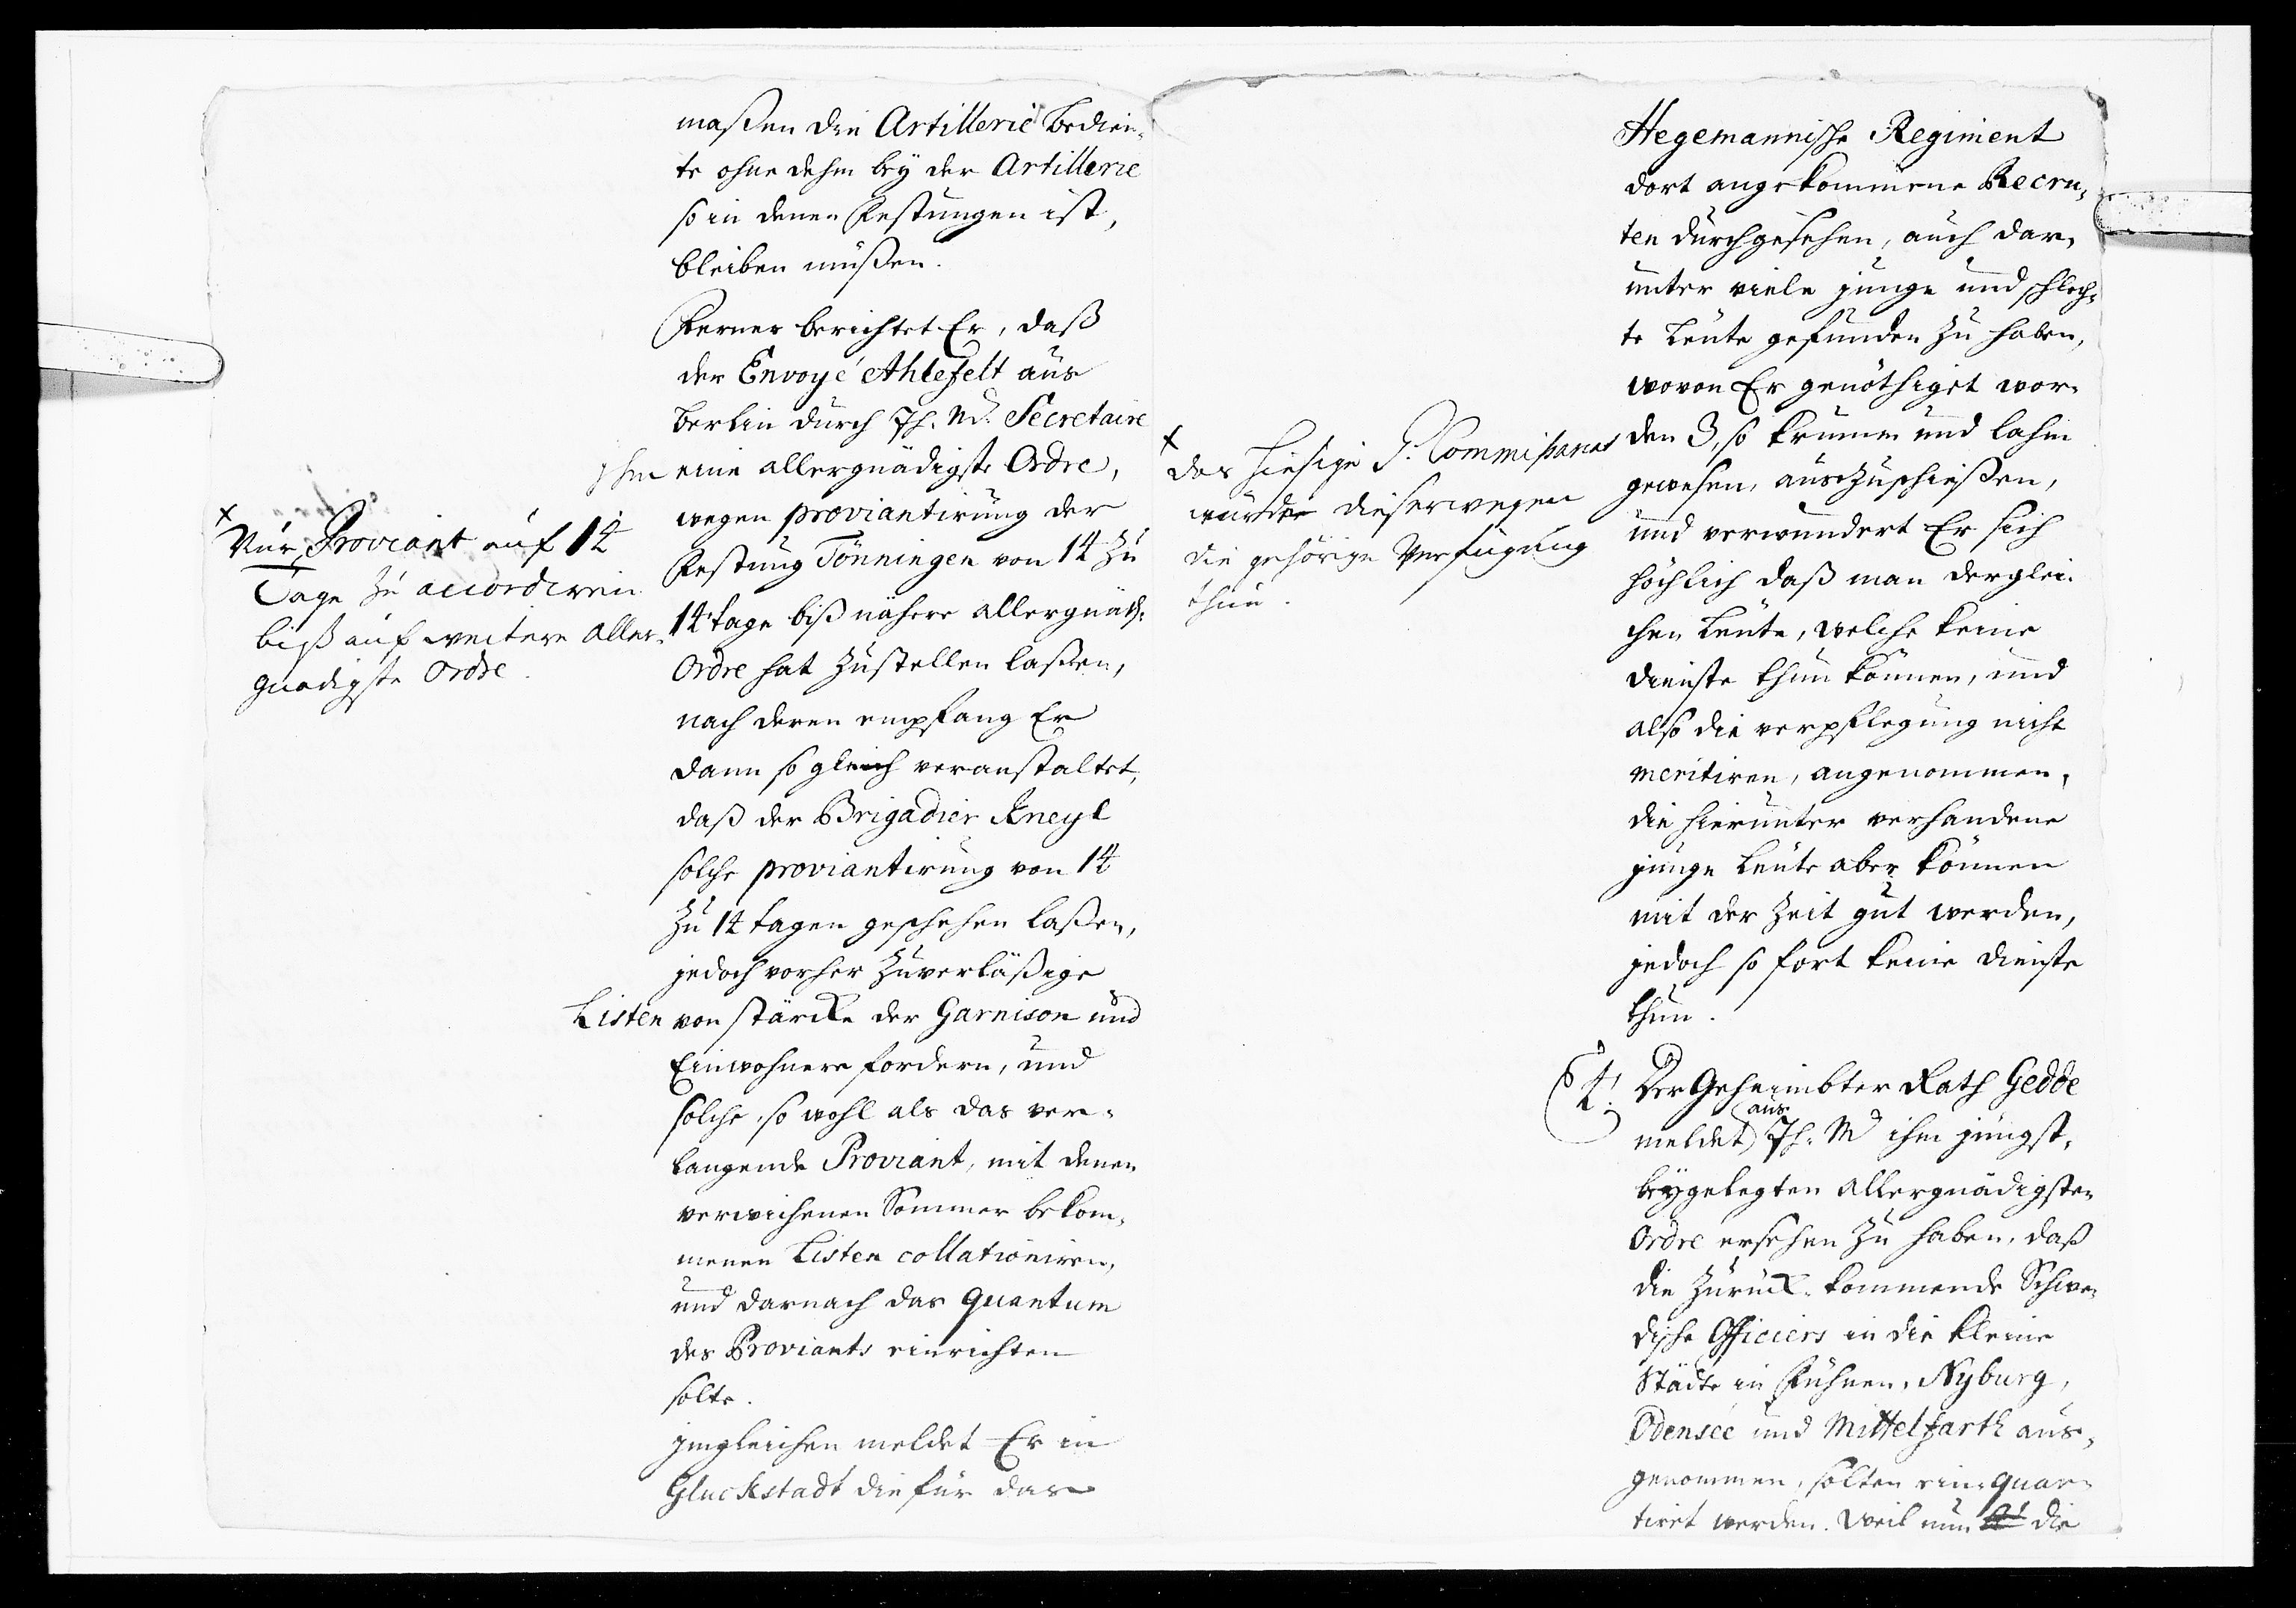 maßen die Artillerie bedien-
te ohne dehm bey der Artillerie
so in denen Festungen ist,
bleiben müßen.
Ferner berichtet Er, daß
der Envoyé Ahlefelt aus
Berlin durch Jh. Md. Secretaire
Ihm eine allergnädigste Ordre,
wegen proviantirung der
Festung Tönningen von 14 zu
14 tage biß nähere allergnäd:
Ordre hat zustellen laßen,
nach deren empfang Er
dann so gleich veranstaltet,
daß der Brigadier Kneyl
solche proviantirung von 14
zu 14 tagen geschehen laßen,
jedoch vorher zuverläßige
Listen von stärcke der Garnison und
Einwohnere fordern, und
solche so wohl als das ver-
langende Proviant, mit denen
verwichenen Sommer bekom-
menen Listen collationiren,
und darnach das quantum
des Proviants einrichten
solte.
jmgleichen meldet Er in
Gluckstadt die für das
x
Nur Proviant auf 14
Tage zu accordiren
biß auf weitere aller-
gnädigste Ordre.
x
das hiesige Commissariat
würde dieserwegen
die gehörige Verfügung
thun.
Hegemannische Regiment
dort angekommene Recru-
ten durchgesehen, auch dar-
unter viele junge und schlech-
te Leute gefunden zu haben,
wovon Er genöthiget wor-
den 3, so krumm und lahm
gewesen, auszuschießen,
und verwundert Er sich
höchlich daß man derglei-
chen Leute, welche keine
dienste thun können, und
also die verpflegung nicht
meritiren, angenommen,
die hierunter verhandene
junge Leute aber können
mit der Zeit gut werden,
jedoch so fort keine dienste
thun.
4. Der Geheimbter Rath Gedde
meldet aus Jh. Md ihm jüngst-
beygelegten allergnädigsten
Ordre ersehen zu haben, daß
die zurück-kommende Schwe-
dische Officiers in die kleine
Städte in Fühnen, Nyburg,
Odensée und Mittelfarth aus-
genommen, solten einquar-
tiret werden. Weil nun die